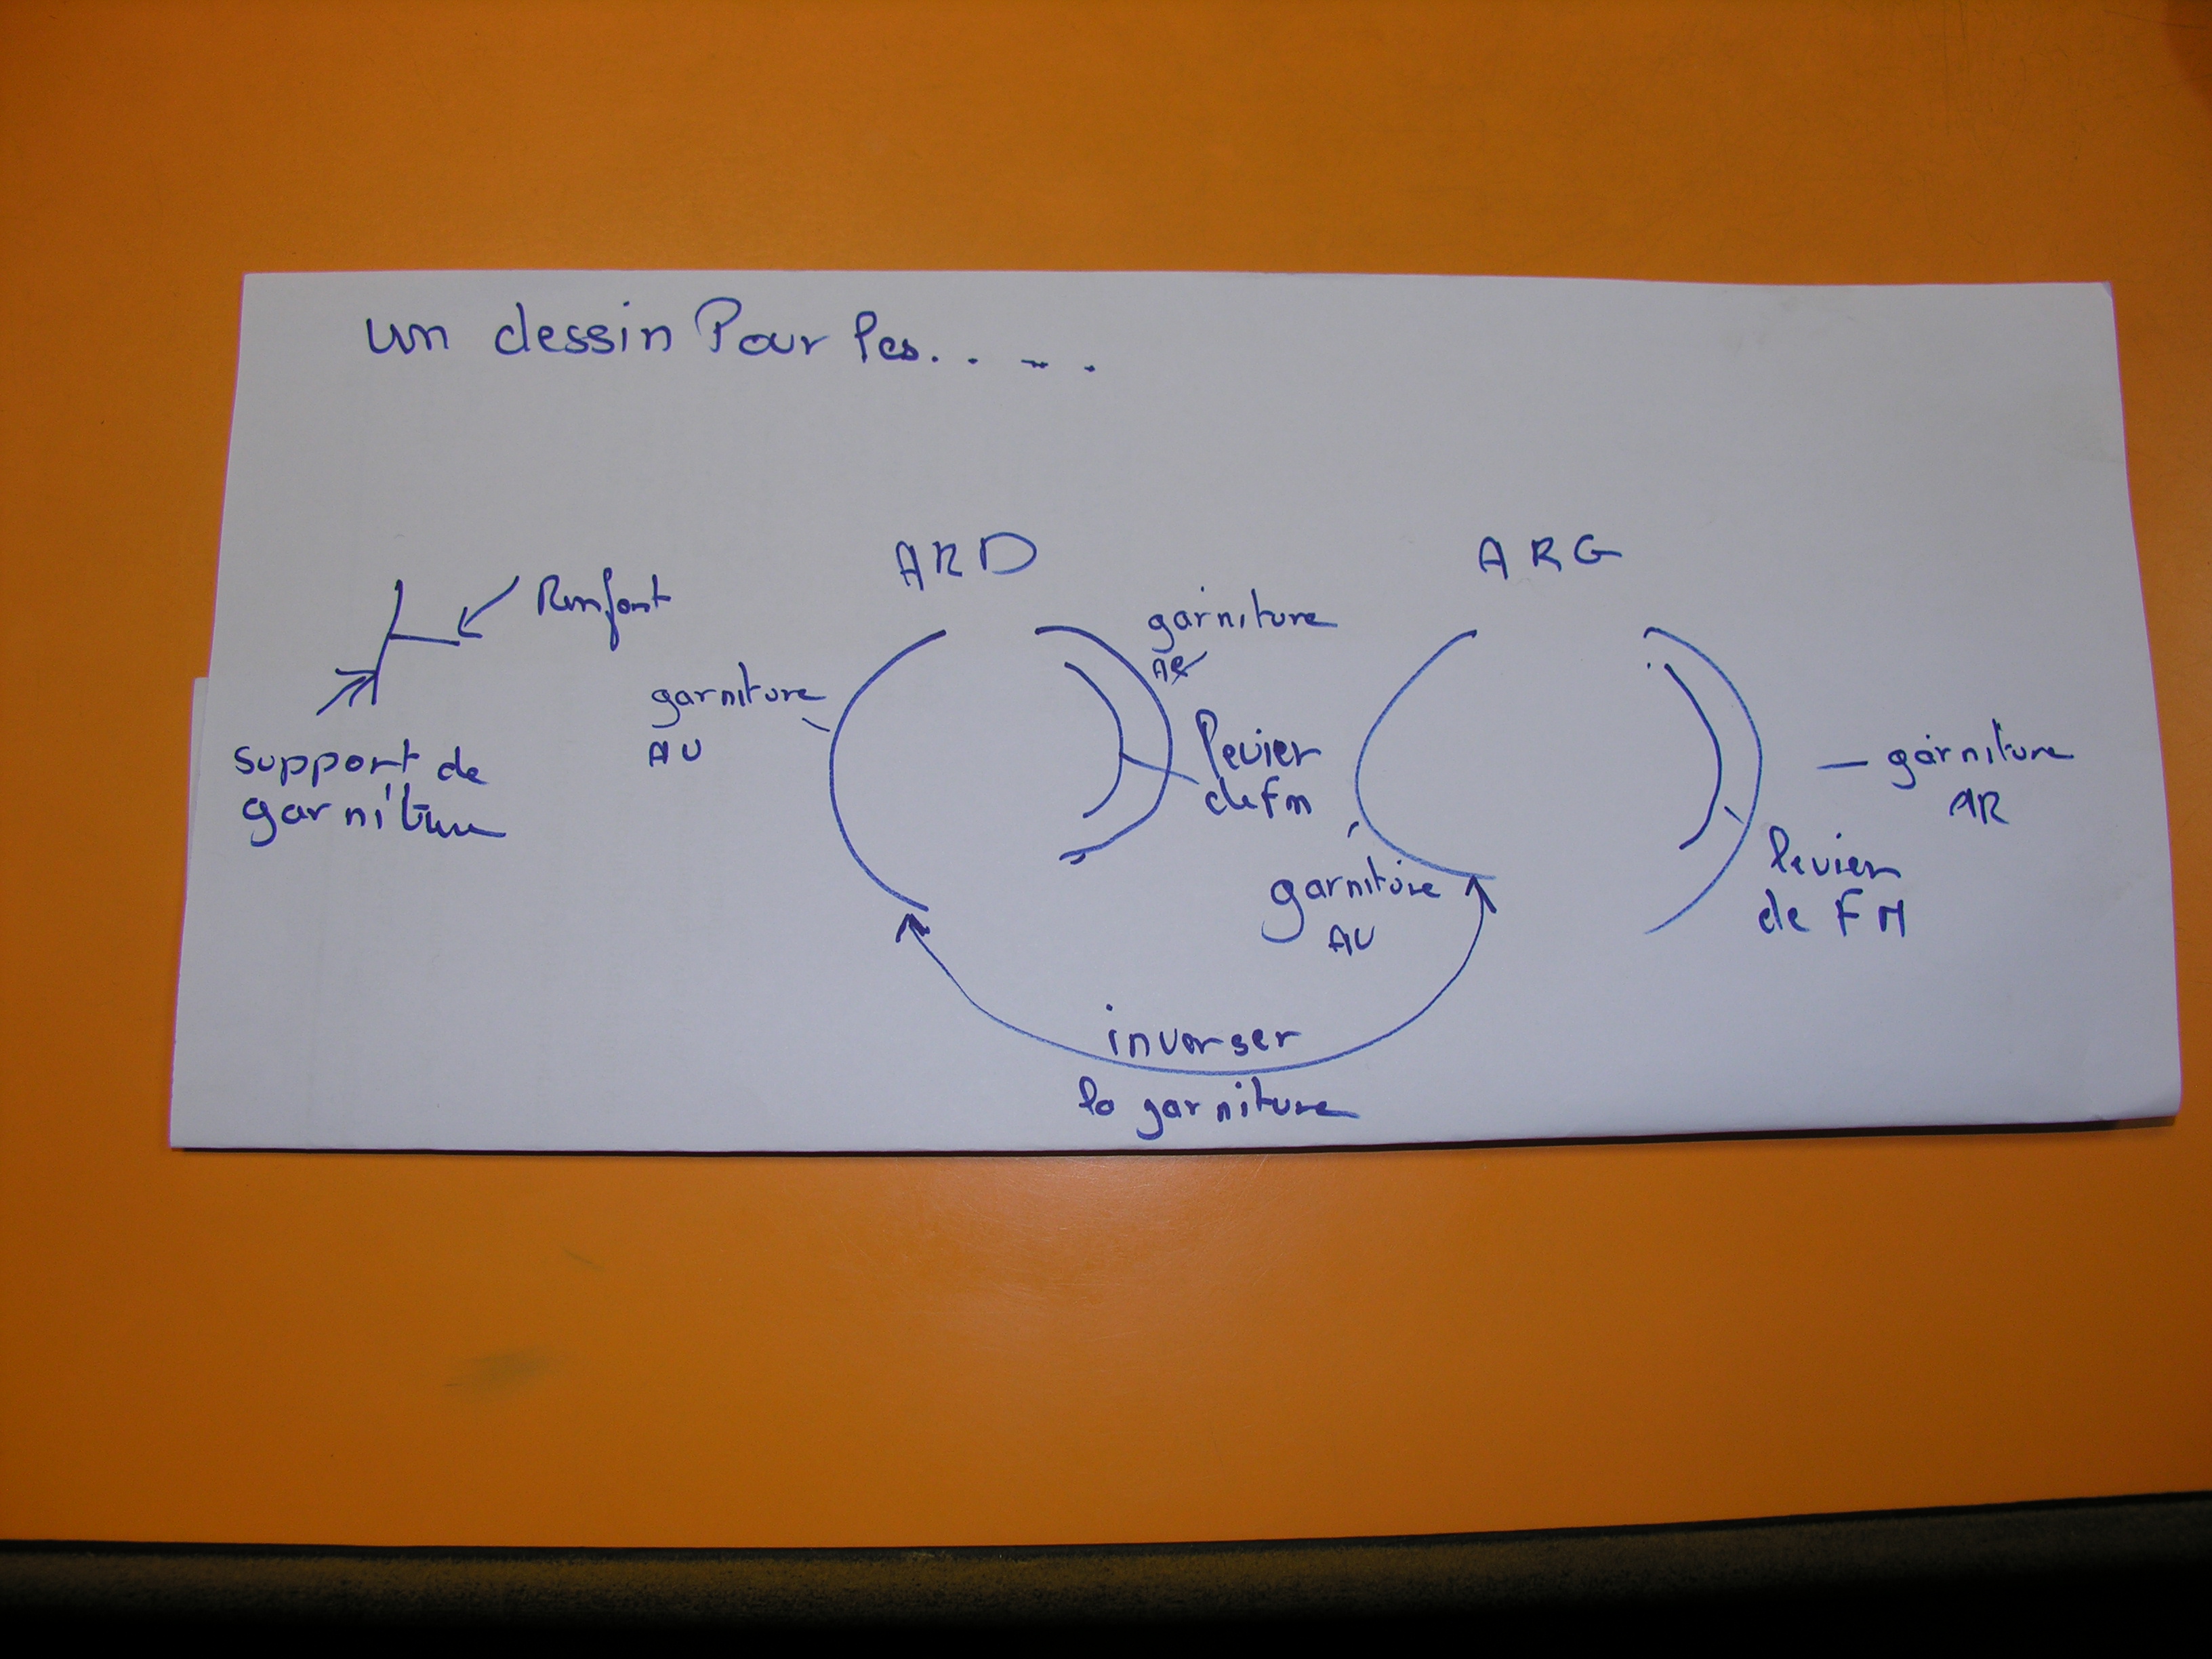 un dessin Pour les.. - - .
ARD
ARG
Renfort
support de
garniture
garniture
AU
garniture
AR
levier
de Fm
garniture
AU
garniture
AR
levier
de FM
inverser
la garniture